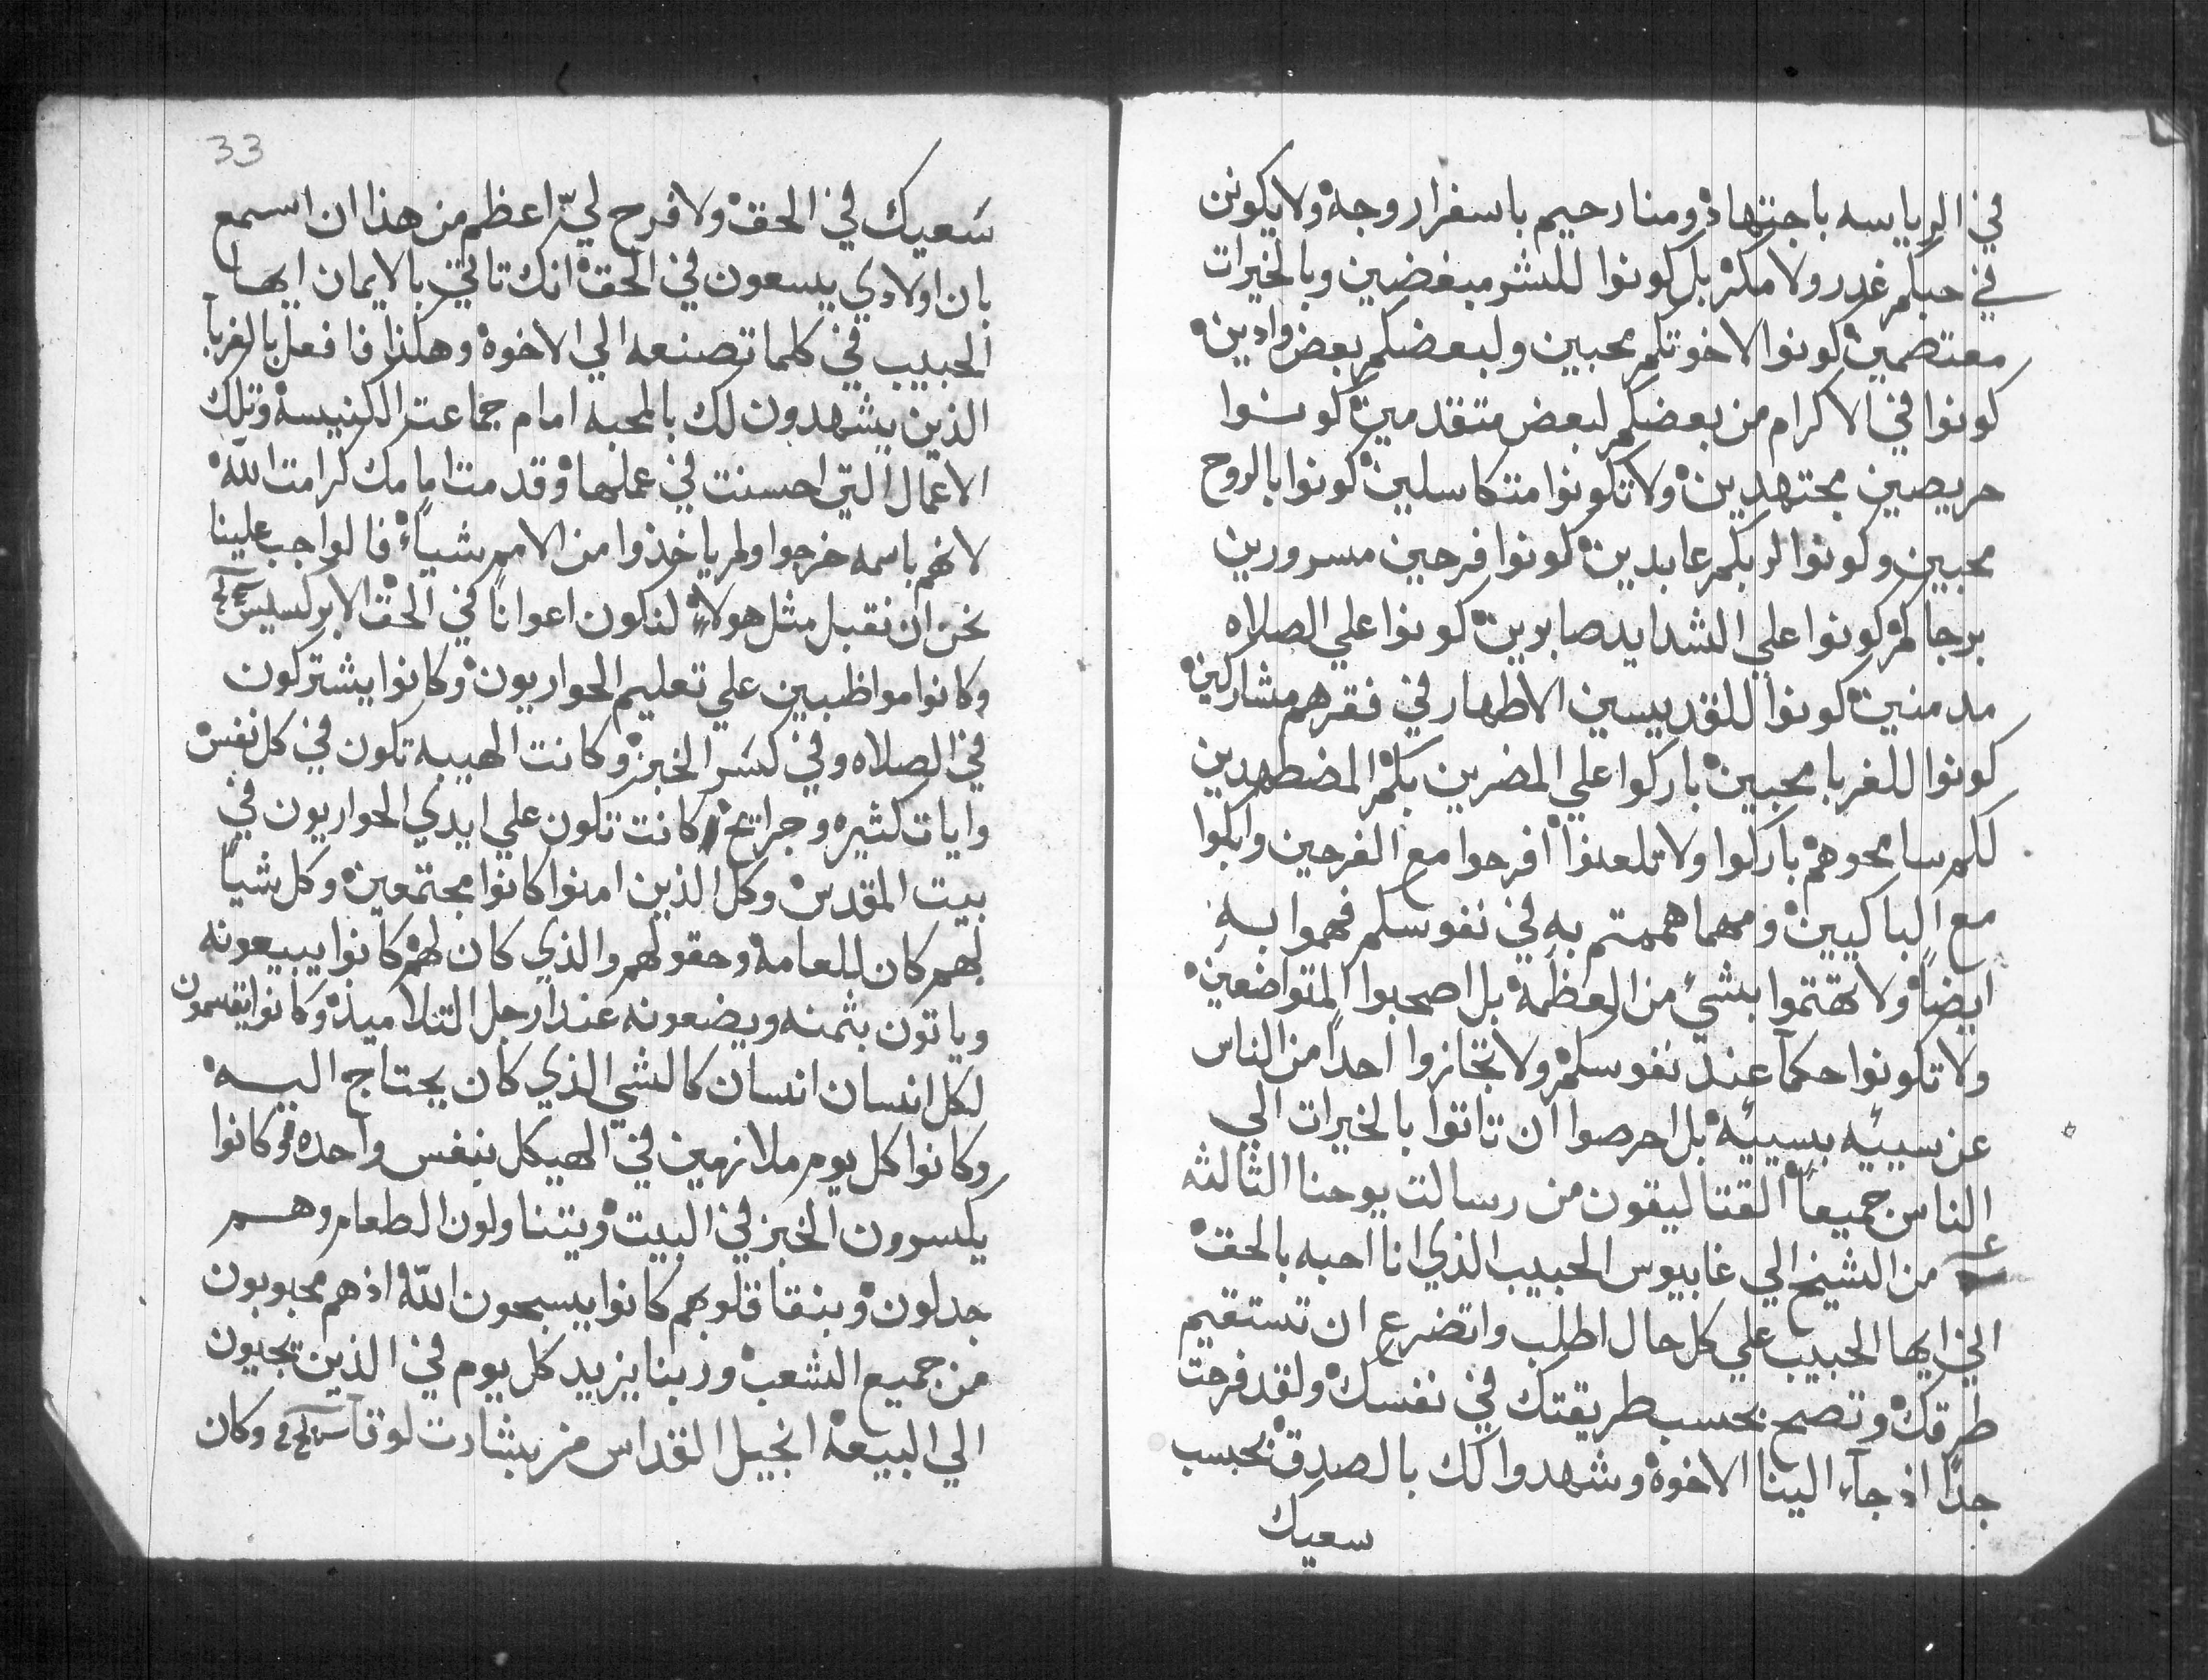 في الرياسه باجتهاد ومنا رحيم باسفرار وجه ولا يكونن
في حبكم غدر ولا مكر بل كونوا للشر مبغضين وبالخيرات
معتصمين كونوا لاخوتكم محبين ولبعضكم بعض وادين
كونوا في الاكرام من بعضكم لبعض متقدمين كونوا
حريصين مجتهدين ولا تكونوا متكاسلين كونوا بالروح
محبين وكونوا لربكم عابدين كونوا فرحين مسرورين
برجاكم كونوا علي الشدايد صابرين كونوا علي الصلاه
مدمنين كونوا للقديسين الاطهار في فقرهم مشاركين
كونوا للغربا محبين باركوا علي المضرين بكم المضطهدين
لكم سامحوهم باركوا ولا تلعنوا افرحوا مع الفرحين وابكوا
مع الباكيين ومهما هممتم به في نفوسكم فهموا به
ايضاً ولا تهتموا بشيء من العظمة بل اصحبوا المتواضعين
ولا تكونوا حكمآ عند نفوسكم ولا تجازوا احداً من الناس
عن سييه بسييه بل احرصوا ان تاتوا بالخيرات الي
الناس جميعاً القتاليقون من رسالت يوحنا الثالثه
من الشيخ الي غابيوس الحبيب الذي انا احبه بالحق
اني ايها الحبيب علي كل حال اطلب واتضرع ان تستقيم
طرقك وتصح بحسب طريقتك في نفسك ولقد فرحت
جداً اذ جآء الينا الاخوة وشهدوا لك بالصدق بحسب
سعيك
33
سَعيك في الحق ولا فرح ليّ اعظم من هذا ان اسمع
بان اولادي يسعون في الحق انك تاتي بالايمان ايها
الحبيب في كلما تصنعه الي الاخوة وهكذا فافعل بالغربآ
الذين يشهدون لك بالمحبه امام جماعت الكنيسة وتلك
الاعمال التي احسنت في عملها وقدمت امامك كرامت الله
لانهم باسمه خرجوا ولم ياخذوا من الامم شياءً فالواجب علينا
نحن ان نقبل مثل هولاء لنكون اعواناً في الحق الابركسيس
وكانوا مواظبين علي تعليم الحواريون وكانوا يشتركون
في الصلاه وفي كسَر الخبز وكانت الهيبه تكون في كل نفس
وايات كثيره وجرايح كانت تكون علي ايدي الحواريون في
بيت المقدس وكل الذين امنوا كانوا مجتمعين وكل شياً
لهم كان للعامة وحقولهم والذي كان لهم كانوا يبيعونه
وياتون بثمنه ويضعونه عند ارجل التلاميذ وكانوا يقسمون
لكل انسان انسان كالشي الذي كان يحتاج اليه
وكانوا كل يوم ملازمين في الهيكل بنفس واحده وكانوا
يكسرون الخبز في البيت ويتناولون الطعام وهم
جدلون وبنقا قلوبهم كانوا يسبحون اللّه اذ هم محبوبون
من جميع الشعب وربنا يزيد كل يوم في الذين يحيون
الي البيعة انجيل القداس من بشارت لوقا وكان